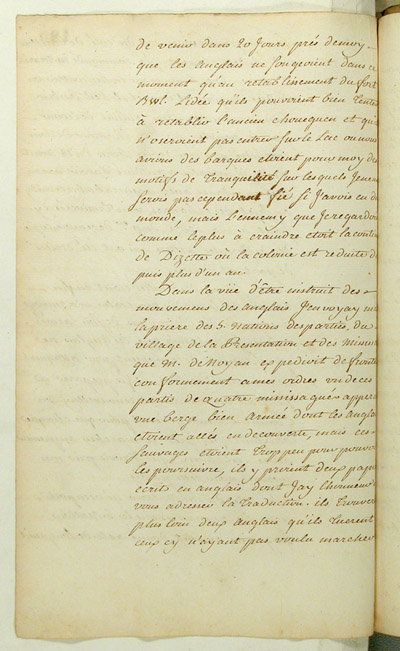 de venir dans 20 Jours prés de moy
que les Anglais ne songeoient dans ce
moment qu'au retablissement du fort
Bull. Lidée qu'ils pouvoient bien Tenter
à retablir L'ancien chouequen et qu'il
n'oseroient pas entrer sur le Lac ou nous
avions des barques etoient pour moy des
motifs de Tranquilité sur lesquels Je ne me
serois pas cependant fié si J'avois eu du
monde, mais L'ennemy que Je regardois
comme le plus à craindre etoit la continu
de Dizette où la colonie est reduite de
puis plus d'un an.
Dans la vüe d'être instruit des
mouvemens des anglais J'envoyay
la priere des 5. nations des partis, du
village de la Presentation et des Missisa
que M. de Noyan expedioit de fronte
conformement a mes ordres un de ces
partis de quatre missisagués apperçu
une berge bien Armée dont les anglais
etoient allés en decouverte, mais ces
sauvages etoient Trop peu pour pouvoir
les poursuivre, ils y prirent deux papiers
ecrits en anglais dont J'ay L'honneur
vous adresser la Traduction. ils Trouverent
plus loin deux Anglais qu'ils Tuerent
ceux cy n'ayant pas voulu marcher